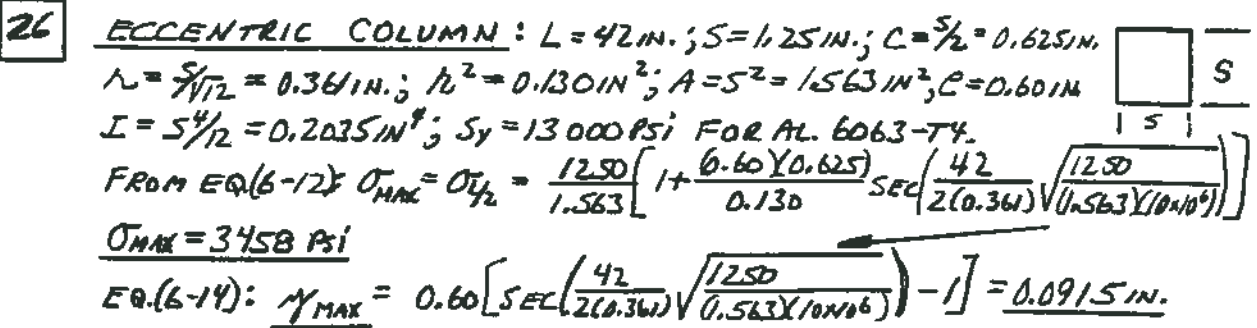 26 ECCENTRIC COLUMN: L = 42 IN.; S = 1.25 IN.; C = S/2 = 0.625 IN.
r = S/√12 = 0.361 IN.; r² = 0.130 IN²; A = S² = 1.563 IN², e = 0.60 IN S
I = S⁴/12 = 0.2035 IN⁴; Sy = 13 000 PSi FOR AL. 6063-T4. S
FROM EQ.(6-12): σMAX = σL/2 = 1250/1.563 [1 + (0.60)(0.625)/0.130 SEC(42/2(0.361) √(1250/(1.563)(10x10⁶)))]
σMAX = 3458 PSi
EQ.(6-14): yMAX = 0.60[SEC(42/2(0.361) √(1250/(1.563)(10x10⁶))) - 1] = 0.0915 IN.